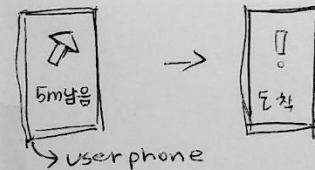 5m남음
!
도착
user phone